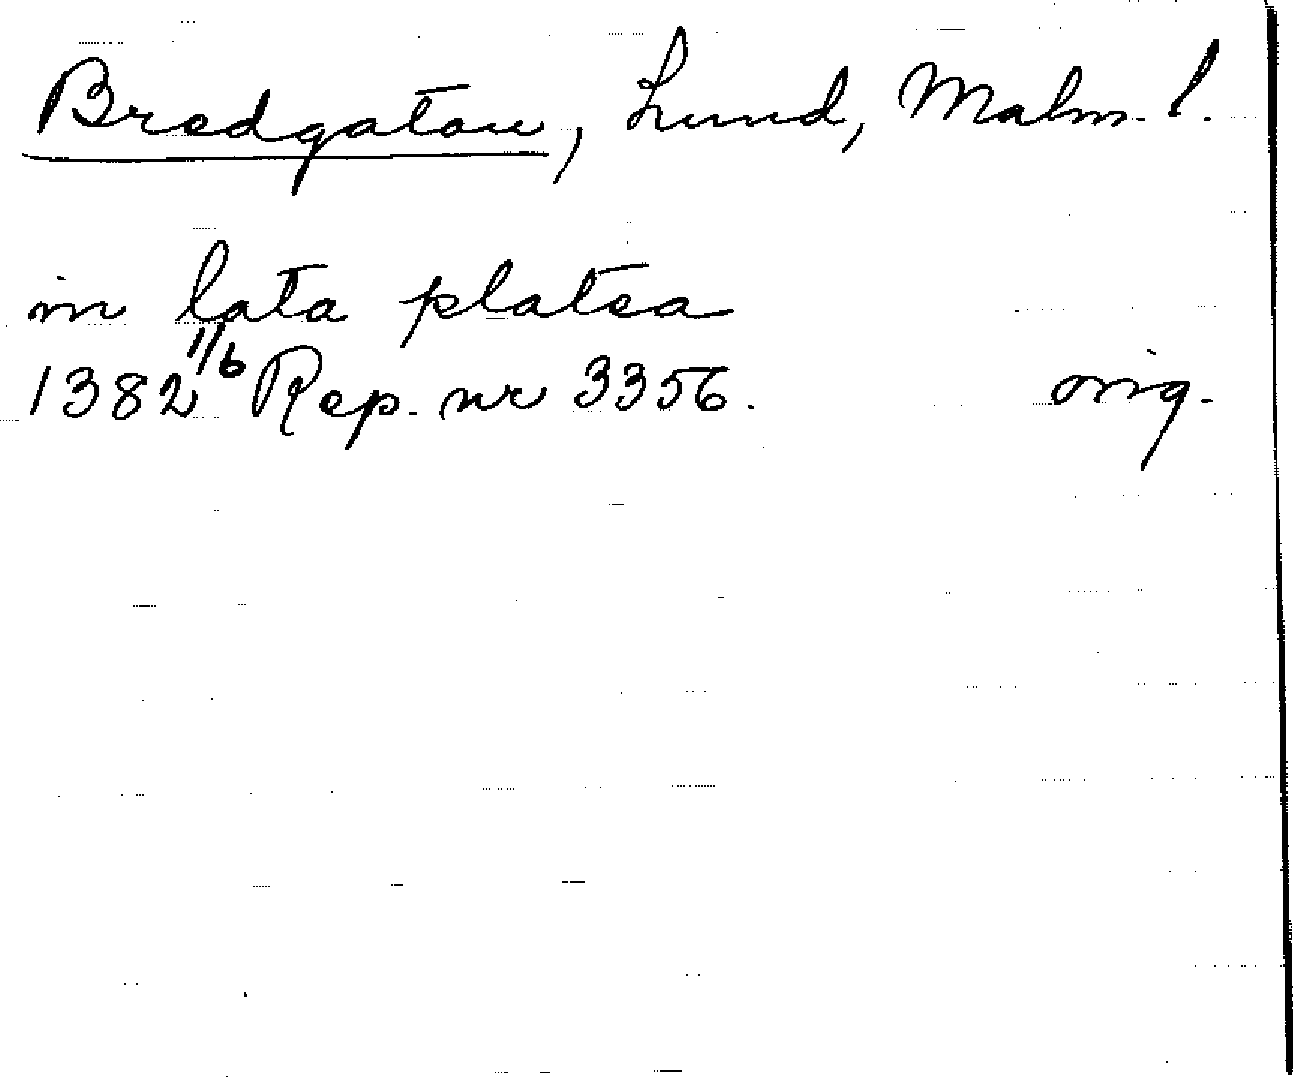 Bredgatan, Lund, Malm. l.
in lata platea
1382 1/6 Rep. nr 3356. orig.